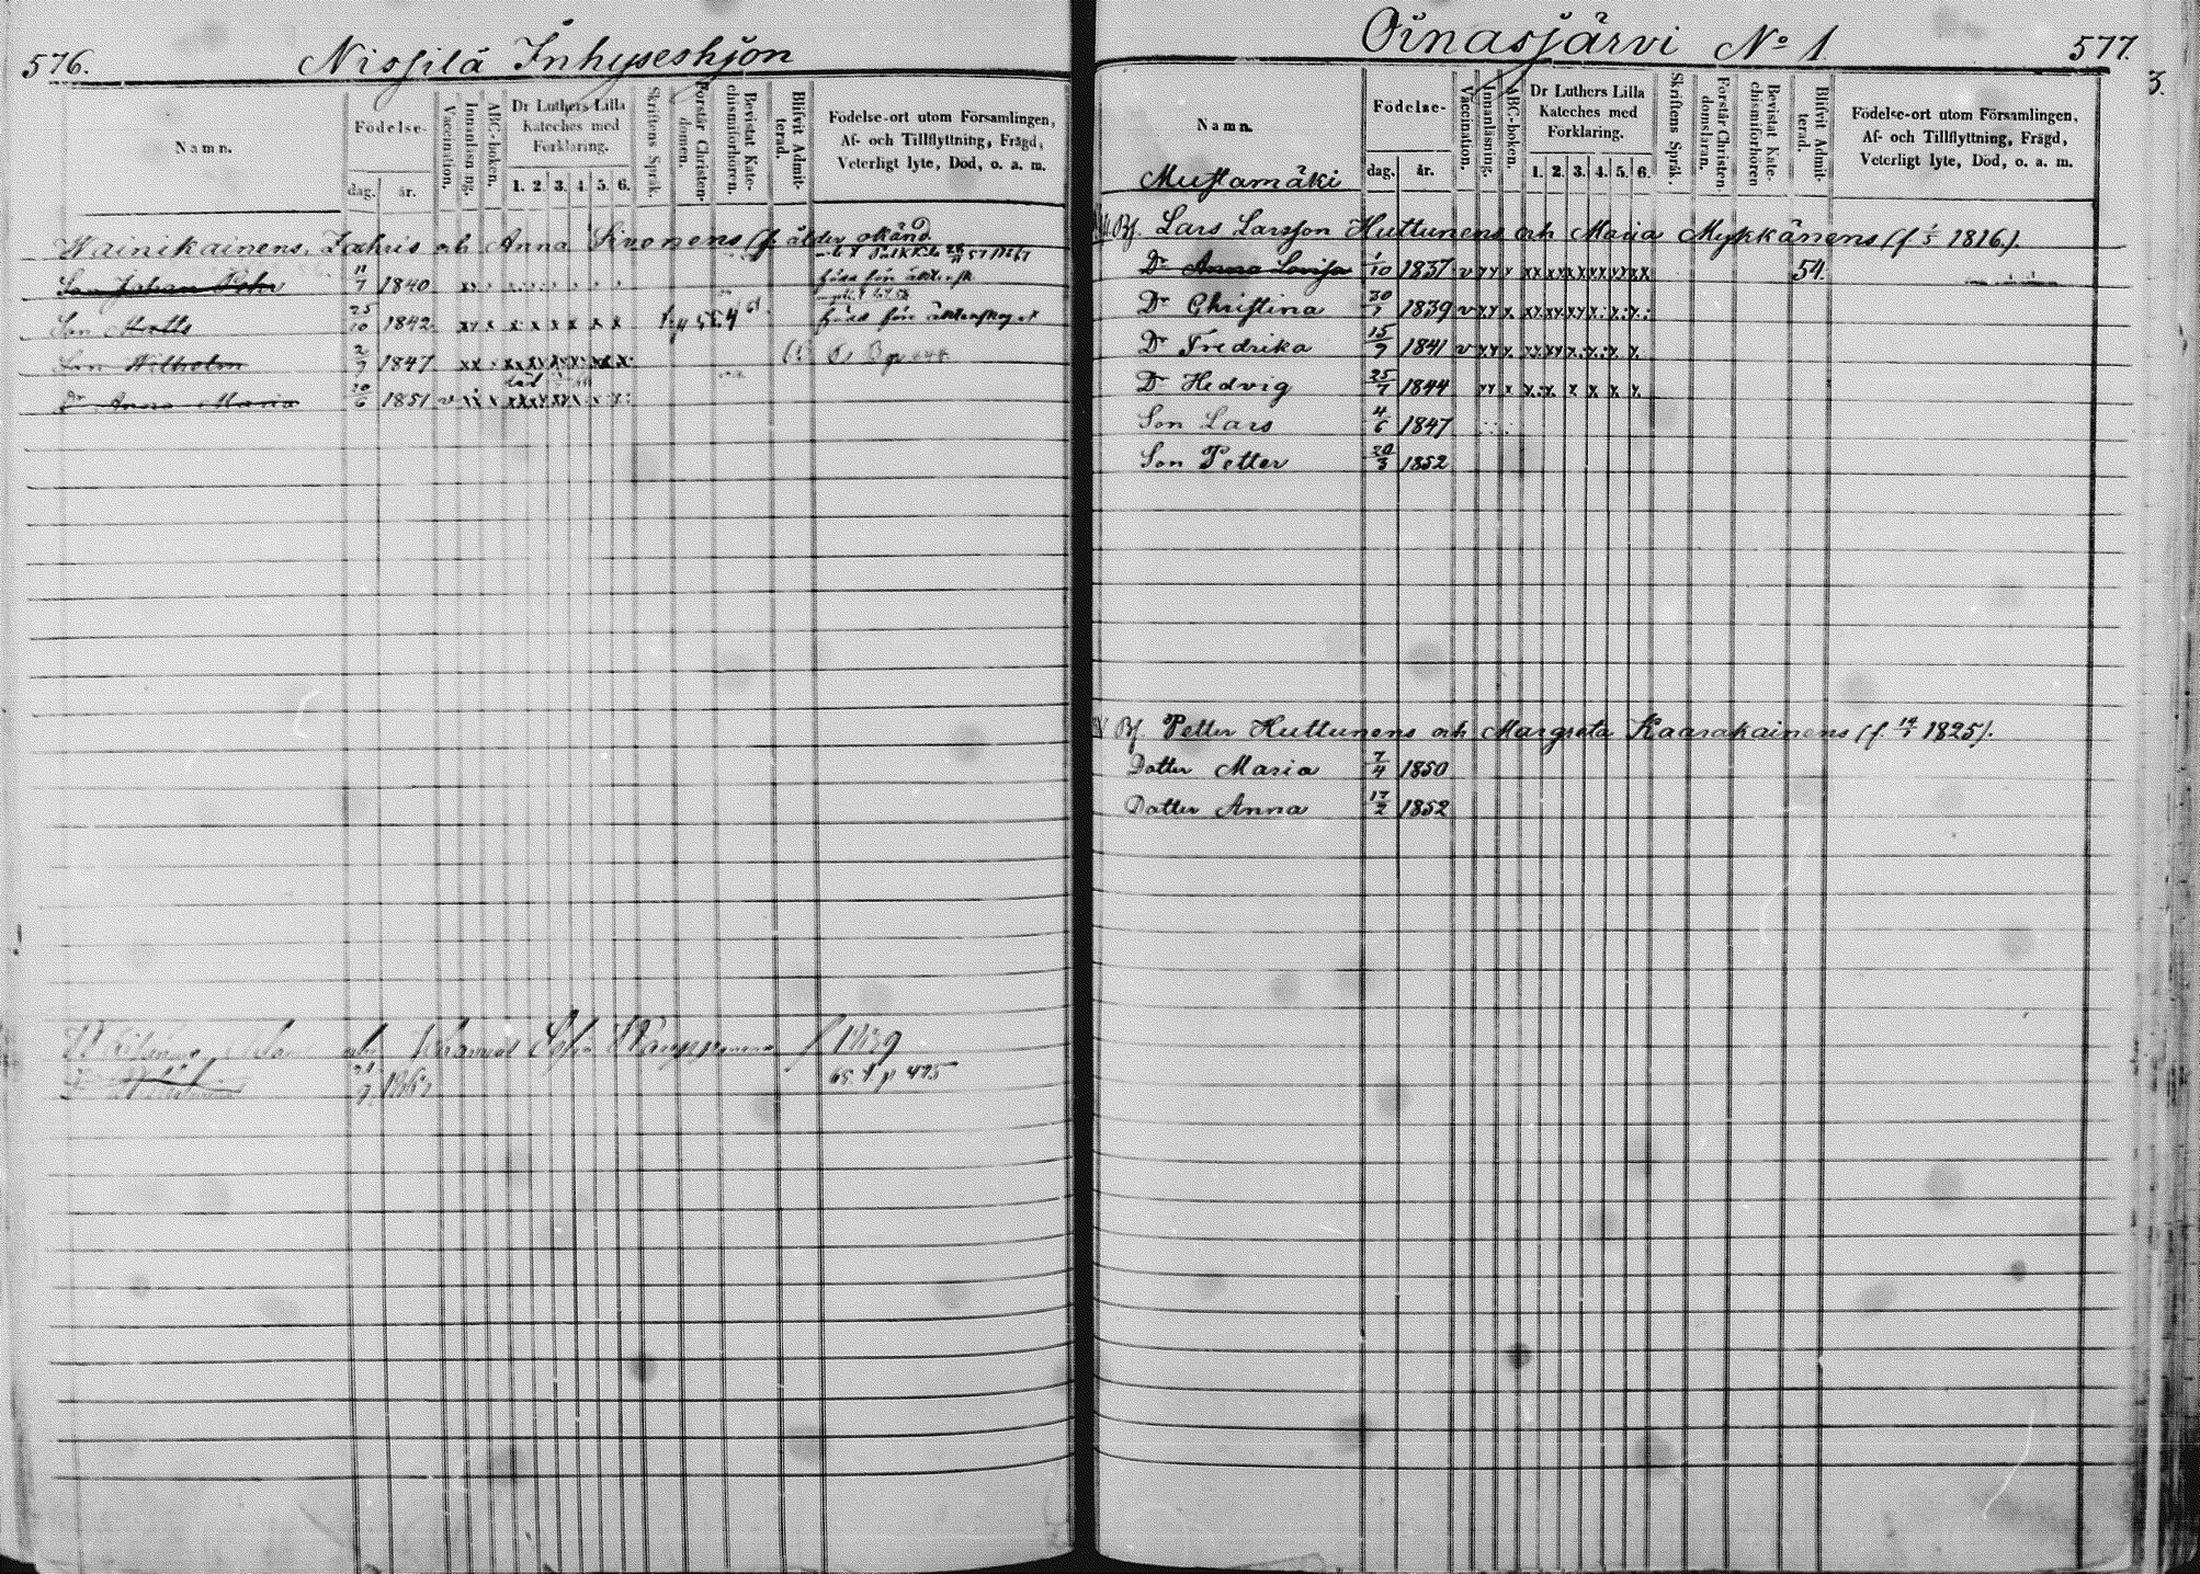 576.
Nissilä Inhyseshjon
Namn.
Födelse-
dag.
år.
Vaccination.
Innanläsning.
ABC-boken.
Dr Luthers Lilla
Kateches med
Förklaring.
1. 2. 3. 4. 5. 6.
Skriftens Språk.
Förstår Christen-
domen.
Bevistat Kate-
chismiförhören.
Blifvit Admit-
terad.
Födelse-ort utom Församlingen,
Af- och Tillflyttning, Frägd,
Veterligt lyte, Död, o. a. m.
Wainikainens, Zachris och Anna Sirenens (f. ålder okänd
Son Johan Petr 11/7 1840
Son Matts 25/10 1842 x x x x x x x x x född före äktenskapet
Son Wilhelm 2/9 1847
Dr Anna Maria 20/6 1851 v
Sofia f 1839
65. p 475
577.
3.
Oinasjärvi No 1.
Namn.
Mustamäki
Födelse-
dag.
år.
Vaccination.
Innanläsning.
ABC-boken.
Dr Luthers Lilla
Kateches med
Förklaring.
1. 2. 3. 4. 5. 6.
Skriftens Språk.
Förstår Christen-
domsläran.
Bevistat Kate-
chismiförhören
Blifvit Admit-
terad.
Födelse-ort utom Församlingen,
Af- och Tillflyttning, Frägd,
Veterligt lyte, Död, o. a. m.
Bf. Lars Larsson Huttunens och Maria Mykkänens (f. 1/5 1816).
Dr Anna Lovisa 1/10 1837 v 54.
Dr Christina 30/7 1839 v
Dr Fredrika 15/9 1841 v
Dr Hedvig 25/7 1844
Son Lars 4/6 1847
Son Petter 20/3 1852
Bf. Petter Huttunens och Margreta Kaarakainens (f. 14/1 1825).
Dotter Maria 7/4 1850
Dotter Anna 17/2 1852